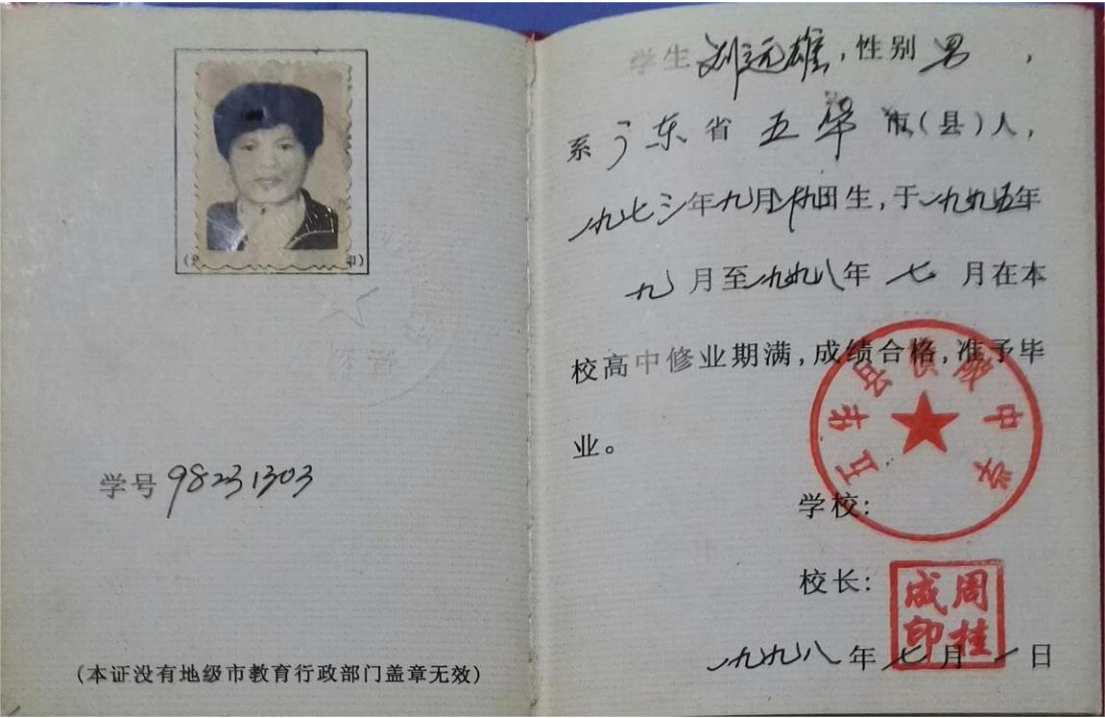 学号 98231303
(本证没有地级市教育行政部门盖章无效)
学生 刘远雄，性别 男，
系 广东 省 五华 市(县)人，
一九七三年九月 日生，于一九九五年
九 月至一九九八年 七 月在本
校高中修业期满，成绩合格，准予毕
业。
五华县 中学
学校：
校长：
周桂成印
一九九八年七月一日